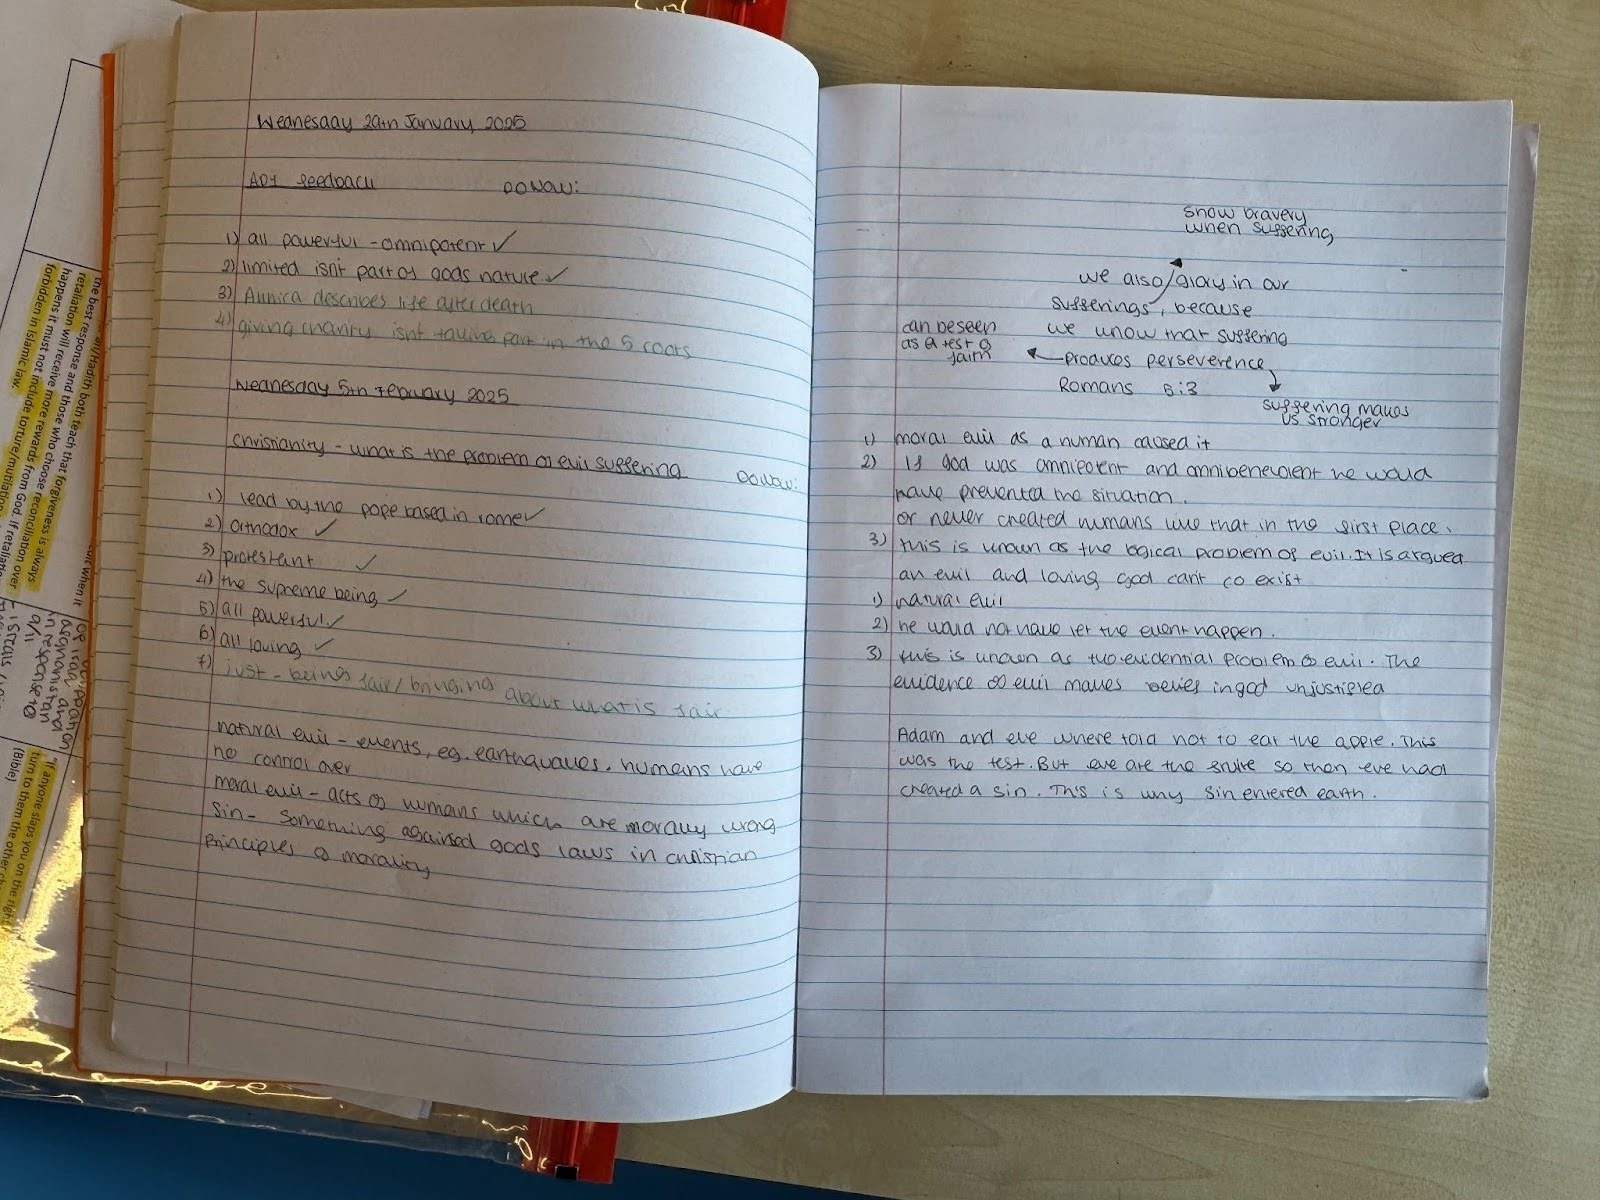 Wednesday 29th January 2025
AO1 feedback DONOW:
1) all powerful - omnipotent ✓
2) limited isnt part of gods nature ✓
3) Akhira describes life after death
4) giving charity isnt taking part in the 5 roots
Wednesday 5th February 2025
Christianity - what is the problem of evil suffering DONOW:
1) lead by the pope based in rome ✓
2) Orthodox ✓
3) protestant ✓
4) the supreme being ✓
5) all powerful ✓
6) all loving ✓
7) just - being fair/bringing about what is fair
natural evil - events, eg. earthquakes. humans have
no control over
moral evil - acts of humans which are morally wrong
Sin - something against gods laws in christian
Principles of morality
show bravery
when suffering
we also glory in our
sufferings, because
we know that suffering
produces perseverence
Romans 5:3
can be seen
as a test of
faith
suffering makes
us stronger
1) moral evil as a human caused it
2) if god was omnipotent and omnibenevolent he would
have prevented the situation.
or never created humans like that in the first place.
3) this is known as the logical problem of evil. It is argued
an evil and loving god can't co exist
1) natural evil
2) he would not have let the event happen.
3) this is known as the evidential problem of evil. The
evidence of evil makes belief in god unjustified
Adam and eve where told not to eat the apple. This
was the test. But eve ate the fruit so then eve had
created a sin. This is why sin entered earth.
the best response and those who choose reconciliation over
retaliation will receive more rewards from God. If retaliation
happens it must not include torture/mutilation
forbidden in Islamic law.
in response to
9/11
"If anyone slaps you on the right
turn to them the other
(Bible)